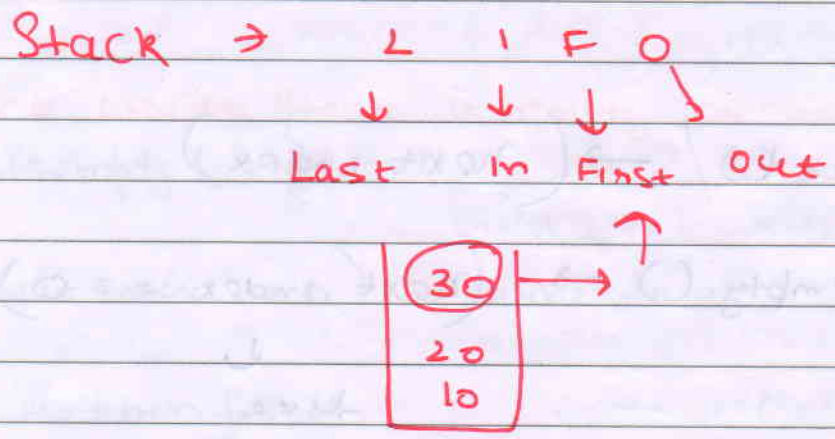 Stack → L I F O
↓ ↓ ↓ ↘
Last in First out
30 →
20
10